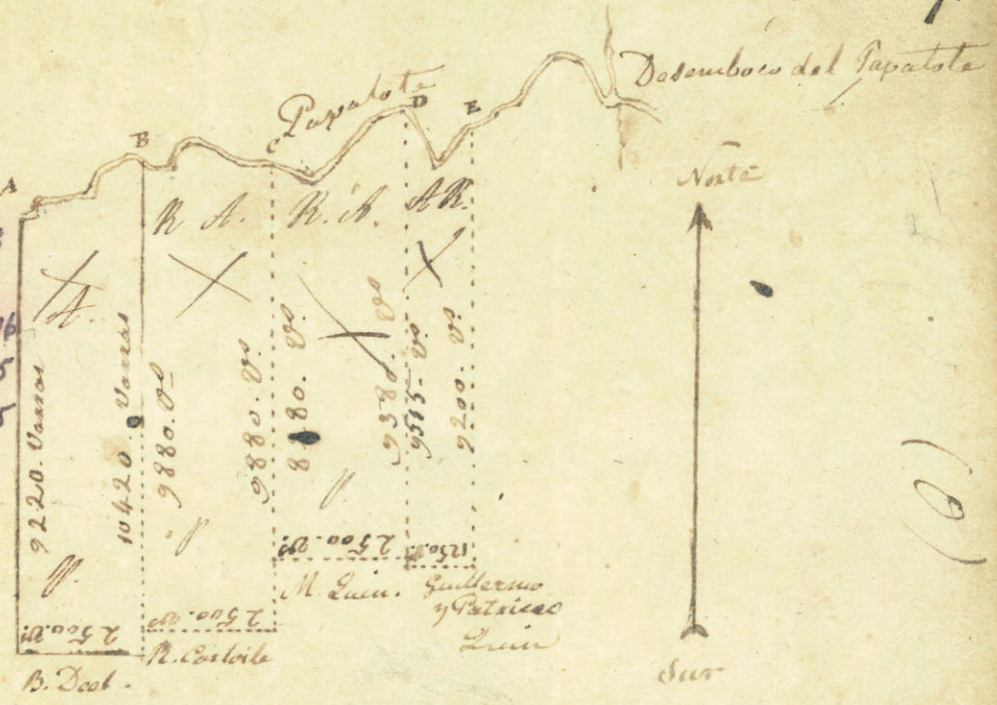 Desemboco del Papalote
Papalote
A
B
C
D
E
Norte
R A.
R. A.
A R.
A.
9220. Varas
10420. Varas
9880. Vs
9880. Vs
8880. Vs
9380. Vs
9515. Vs
9200. Vs
2500. Vs
2500. Vs
2500. Vs
1250. Vs
M. Quin.
Guillermo
y Patricio
Quin
B. Doal.
Sur
(6)